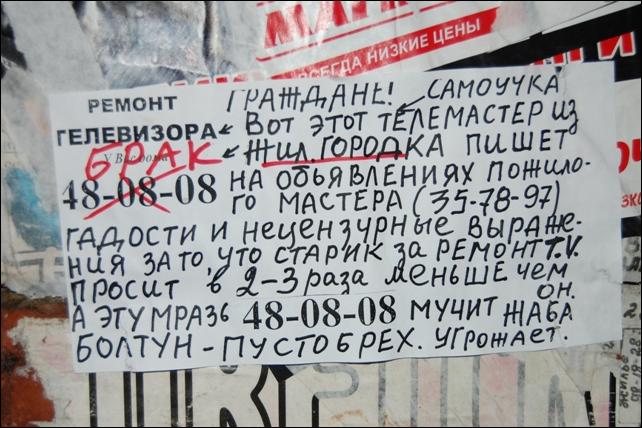 ВСЕГДА НИЗКИЕ ЦЕНЫ
РЕМОНТ ГРАЖДАНЕ! САМОУЧКА
ТЕЛЕВИЗОРА ВОТ ЭТОТ ТЕЛЕМАСТЕР ИЗ
У Вас дома БРАК ЖИЛ. ГОРОДКА ПИШЕТ
48-08-08 НА ОБЪЯВЛЕНИЯХ ПОЖИЛО-
ГО МАСТЕРА (35-78-97)
ГАДОСТИ И НЕЦЕНЗУРНЫЕ ВЫРАЖЕ-
НИЯ ЗА ТО, ЧТО СТАРИК ЗА РЕМОНТ T.V.
ПРОСИТ В 2-3 РАЗА МЕНЬШЕ ЧЕМ ОН.
А ЭТУ МРАЗЬ 48-08-08 МУЧИТ ЖАБА
БОЛТУН - ПУСТОБРЕХ. УГРОЖАЕТ.